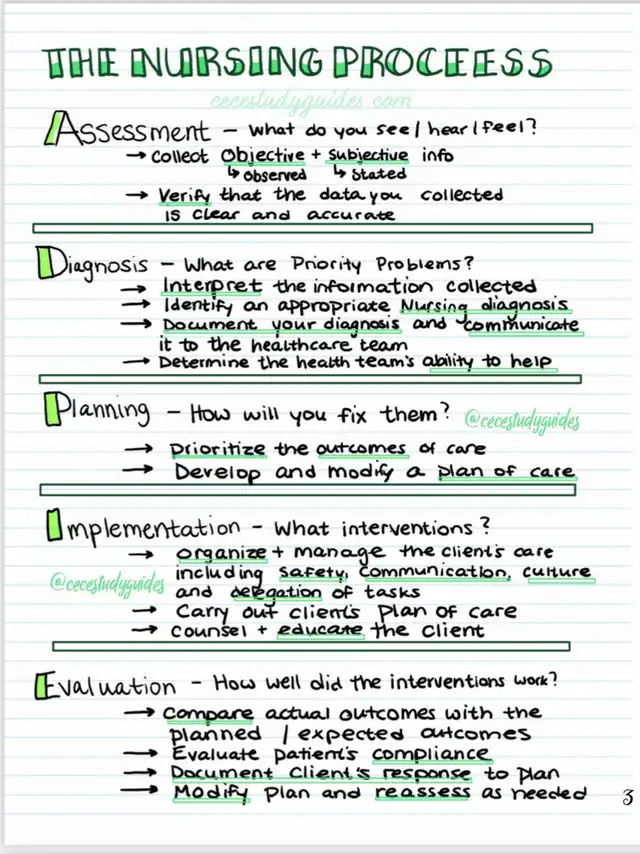 THE NURSING PROCEESS
cecestudyguides.com
Assessment - What do you see / hear / feel?
→ Collect Objective + Subjective info
↳ Observed ↳ Stated
→ Verify that the data you collected
is clear and accurate
Diagnosis - What are Priority Problems?
→ Interpret the information collected
→ Identify an appropriate Nursing diagnosis
→ Document your diagnosis and communicate
it to the healthcare team
→ Determine the health team's ability to help
Planning - How will you fix them? @cecestudyguides
→ Prioritize the outcomes of care
→ Develop and modify a plan of care
Implementation - What interventions?
→ organize + manage the client's care
@cecestudyguides including safety, communication, culture
and delegation of tasks
→ Carry out client's plan of care
→ Counsel + educate the client
Evaluation - How well did the interventions work?
→ Compare actual outcomes with the
planned / expected outcomes
→ Evaluate patient's compliance
→ Document client's response to plan
→ Modify plan and reassess as needed 3